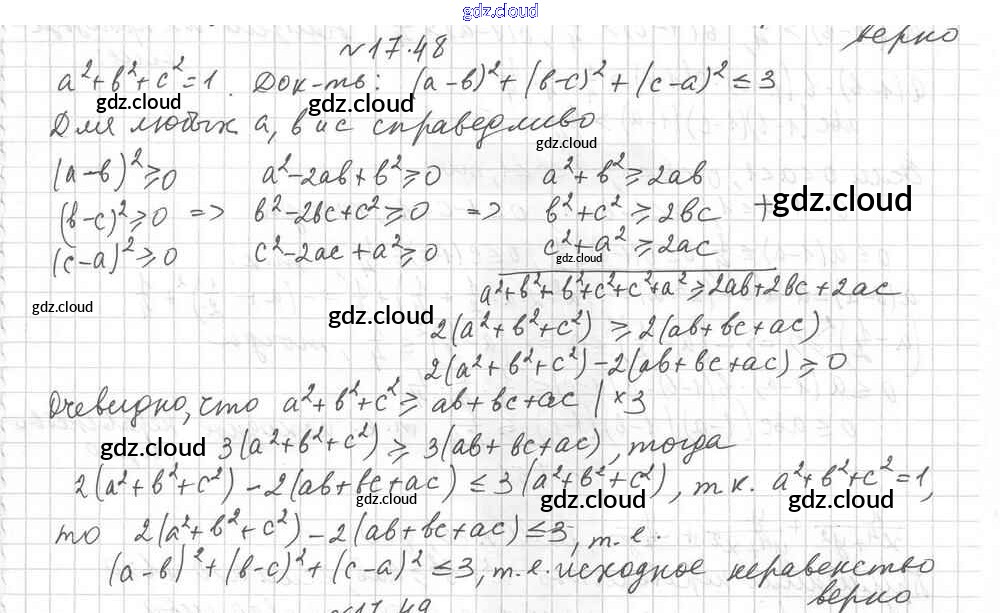 gdz.cloud
верно
№17.48
a²+в²+c²=1. Док-ть: (a-в)²+(в-c)²+(c-a)²≤3
gdz.cloud gdz.cloud
Для любых a, в и c справедливо
gdz.cloud
(a-в)²≥0 a²-2aв+в²≥0 a²+в²≥2aв
(в-c)²≥0 => в²-2вc+c²≥0 => в²+c²≥2вc + gdz.cloud
(c-a)²≥0 c²-2ac+a²≥0 c²+a²≥2ac
gdz.cloud
a²+в²+в²+c²+c²+a²≥2aв+2вc+2ac
gdz.cloud gdz.cloud
2(a²+в²+c²)≥2(aв+вc+ac)
2(a²+в²+c²)-2(aв+вc+ac)≥0
Очевидно, что a²+в²+c²≥aв+вc+ac |×3
gdz.cloud 3(a²+в²+c²)≥3(aв+вc+ac), тогда
2(a²+в²+c²)-2(aв+вc+ac)≤3(a²+в²+c²), т.к. a²+в²+c²=1,
gdz.cloud gdz.cloud
то 2(a²+в²+c²)-2(aв+вc+ac)≤3, т.е.
(a-в)²+(в-c)²+(c-a)²≤3, т.е. исходное неравенство
верно.
№17.49